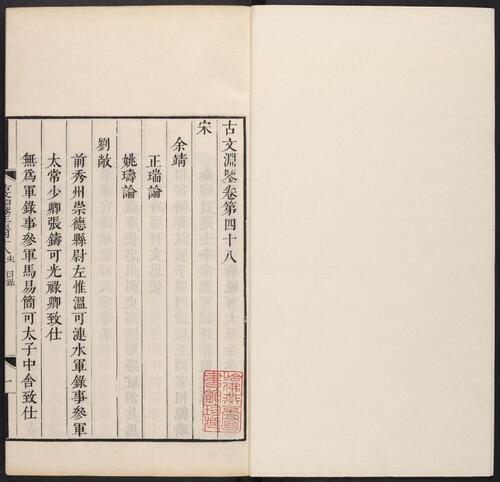 古文淵鑒卷第四十八
宋
余靖
正瑞論
姚璹論
劉敞
前秀州崇德縣尉左惟溫可漣水軍錄事參軍
太常少卿張鑄可光祿卿致仕
無為軍錄事參軍馬易簡可太子中舍致仕
古文淵鑒卷四十八 宋 目錄
一
哈佛燕京圖書館珍藏